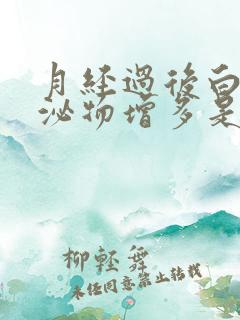 月经過後白
泌物增多是
柳輕舞
未经同意禁止转载